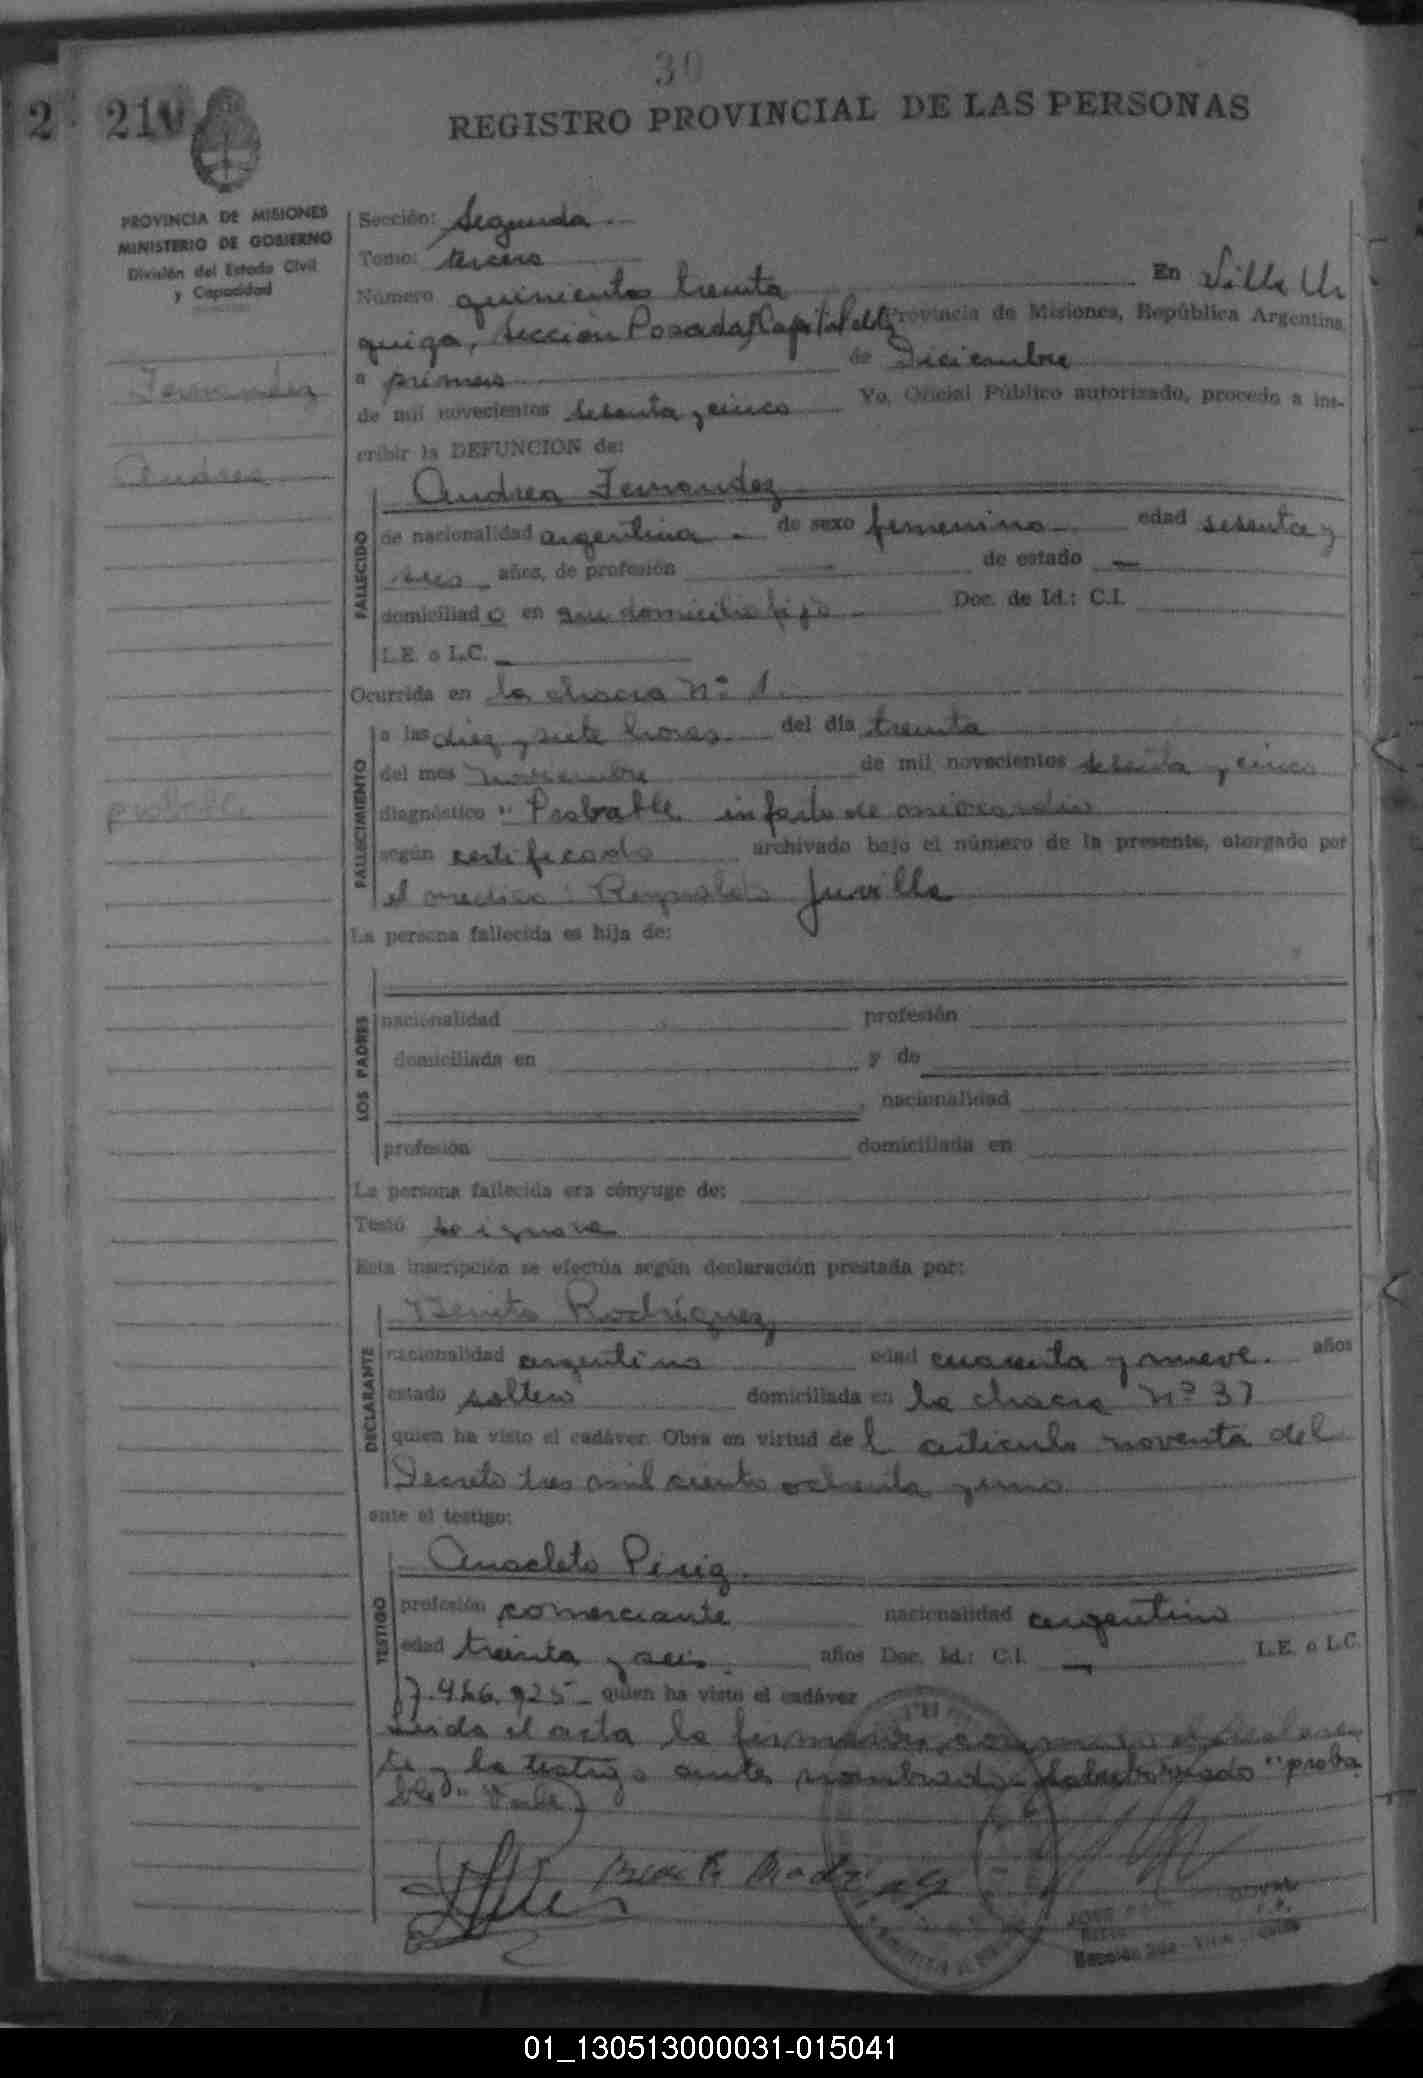 30
2 210
REGISTRO PROVINCIAL DE LAS PERSONAS
PROVINCIA DE MISIONES
MINISTERIO DE GOBIERNO
División del Estado Civil
y Capacidad
Fernandez
Andrea
probable
Sección: Segunda
Tomo: tercero
Número quinientos treinta En Villa Ur
quiza, Sección Posadas, Capital del Provincia de Misiones, República Argentina,
a primero de Diciembre
de mil novecientos sesenta y cinco Yo, Oficial Público autorizado, procedo a ins-
cribir la DEFUNCION de:
FALLECIDO
Andrea Fernandez
de nacionalidad argentina de sexo femenino edad sesenta y
tres años, de profesión — de estado —
domiciliado en su domicilio fijo Doc. de Id.: C.I.
L.E. o L.C. —
Ocurrida en la chacra Nº 1.
FALLECIMIENTO
a las diez y siete horas del día treinta
del mes noviembre de mil novecientos sesenta y cinco
diagnóstico "Probable infarto de miocardio
según certificado archivado bajo el número de la presente, otorgado por
el medico: Reynaldo
La persona fallecida es hija de:
LOS PADRES
nacionalidad profesión
domiciliada en y de
nacionalidad
profesión domiciliada en
La persona fallecida era cónyuge de:
Testó se ignora
Esta inscripción se efectúa según declaración prestada por:
DECLARANTE
Benito Rodriguez
nacionalidad argentino edad cuarenta y nueve. años
estado soltero domiciliada en la chacra Nº 37
quien ha visto el cadáver. Obra en virtud de l articulo noventa del
Decreto tres mil ciento ochenta y uno
ante el testigo:
TESTIGO
Anacleto Periz
profesión comerciante nacionalidad argentino
edad treinta y seis. años Doc. Id.: C.I. — L.E. o L.C.
7.466.925 quien ha visto el cadáver
Leida el acta la firman conmigo el declaran
te y la testigo antes nombrado "proba
ble" Vale
Benito Rodriguez
JOSE
01_130513000031-015041